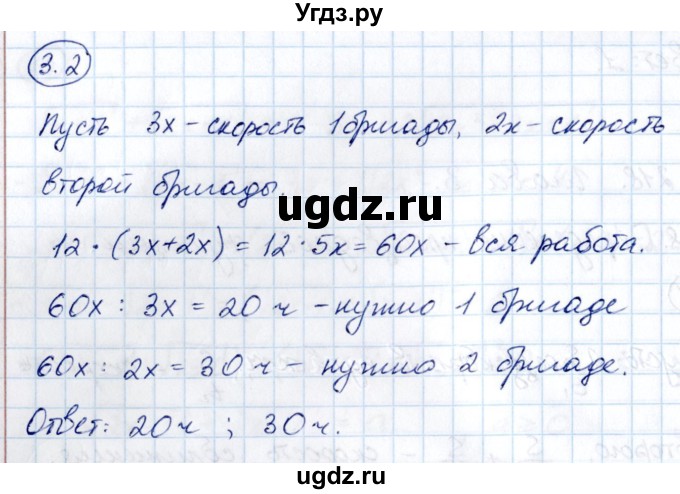 Угдз.ру
3.2
Пусть 3x – скорость 1 бригады, 2x – скорость
второй бригады.
ugdz.ru
12 · (3x+2x) = 12 · 5x = 60x – вся работа.
60x : 3x = 20 ч – нужно 1 бригаде
60x : 2x = 30 ч – нужно 2 бригаде.
Ответ: 20ч ; 30ч.
ugdz.ru